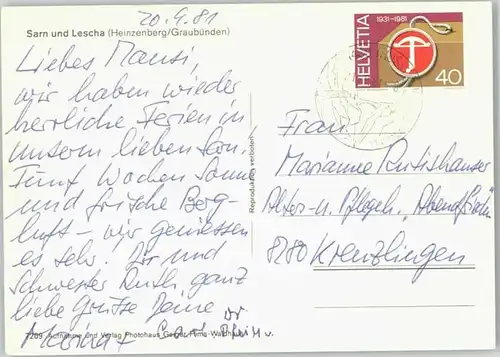 20.9.81
Sarn und Lescha (Heinzenberg/Graubünden)
Liebes Mausi,
wir haben wieder
herrliche Ferien in
unserm lieben Sarn.
Fünf Wochen Sonne
und frische Berg-
luft – wir geniessen
es sehr. Dir und
Schwester Ruth ganz
liebe Grüsse Deine
HELVETIA 1931-1981
40
Reproduktion verboten
Frau
Marianne Rutishauser
Alters-u. Pflegeh.
8280 Kreuzlingen
7209 Aufnahme und Verlag Photohaus Geiger, Flims-Waldhaus